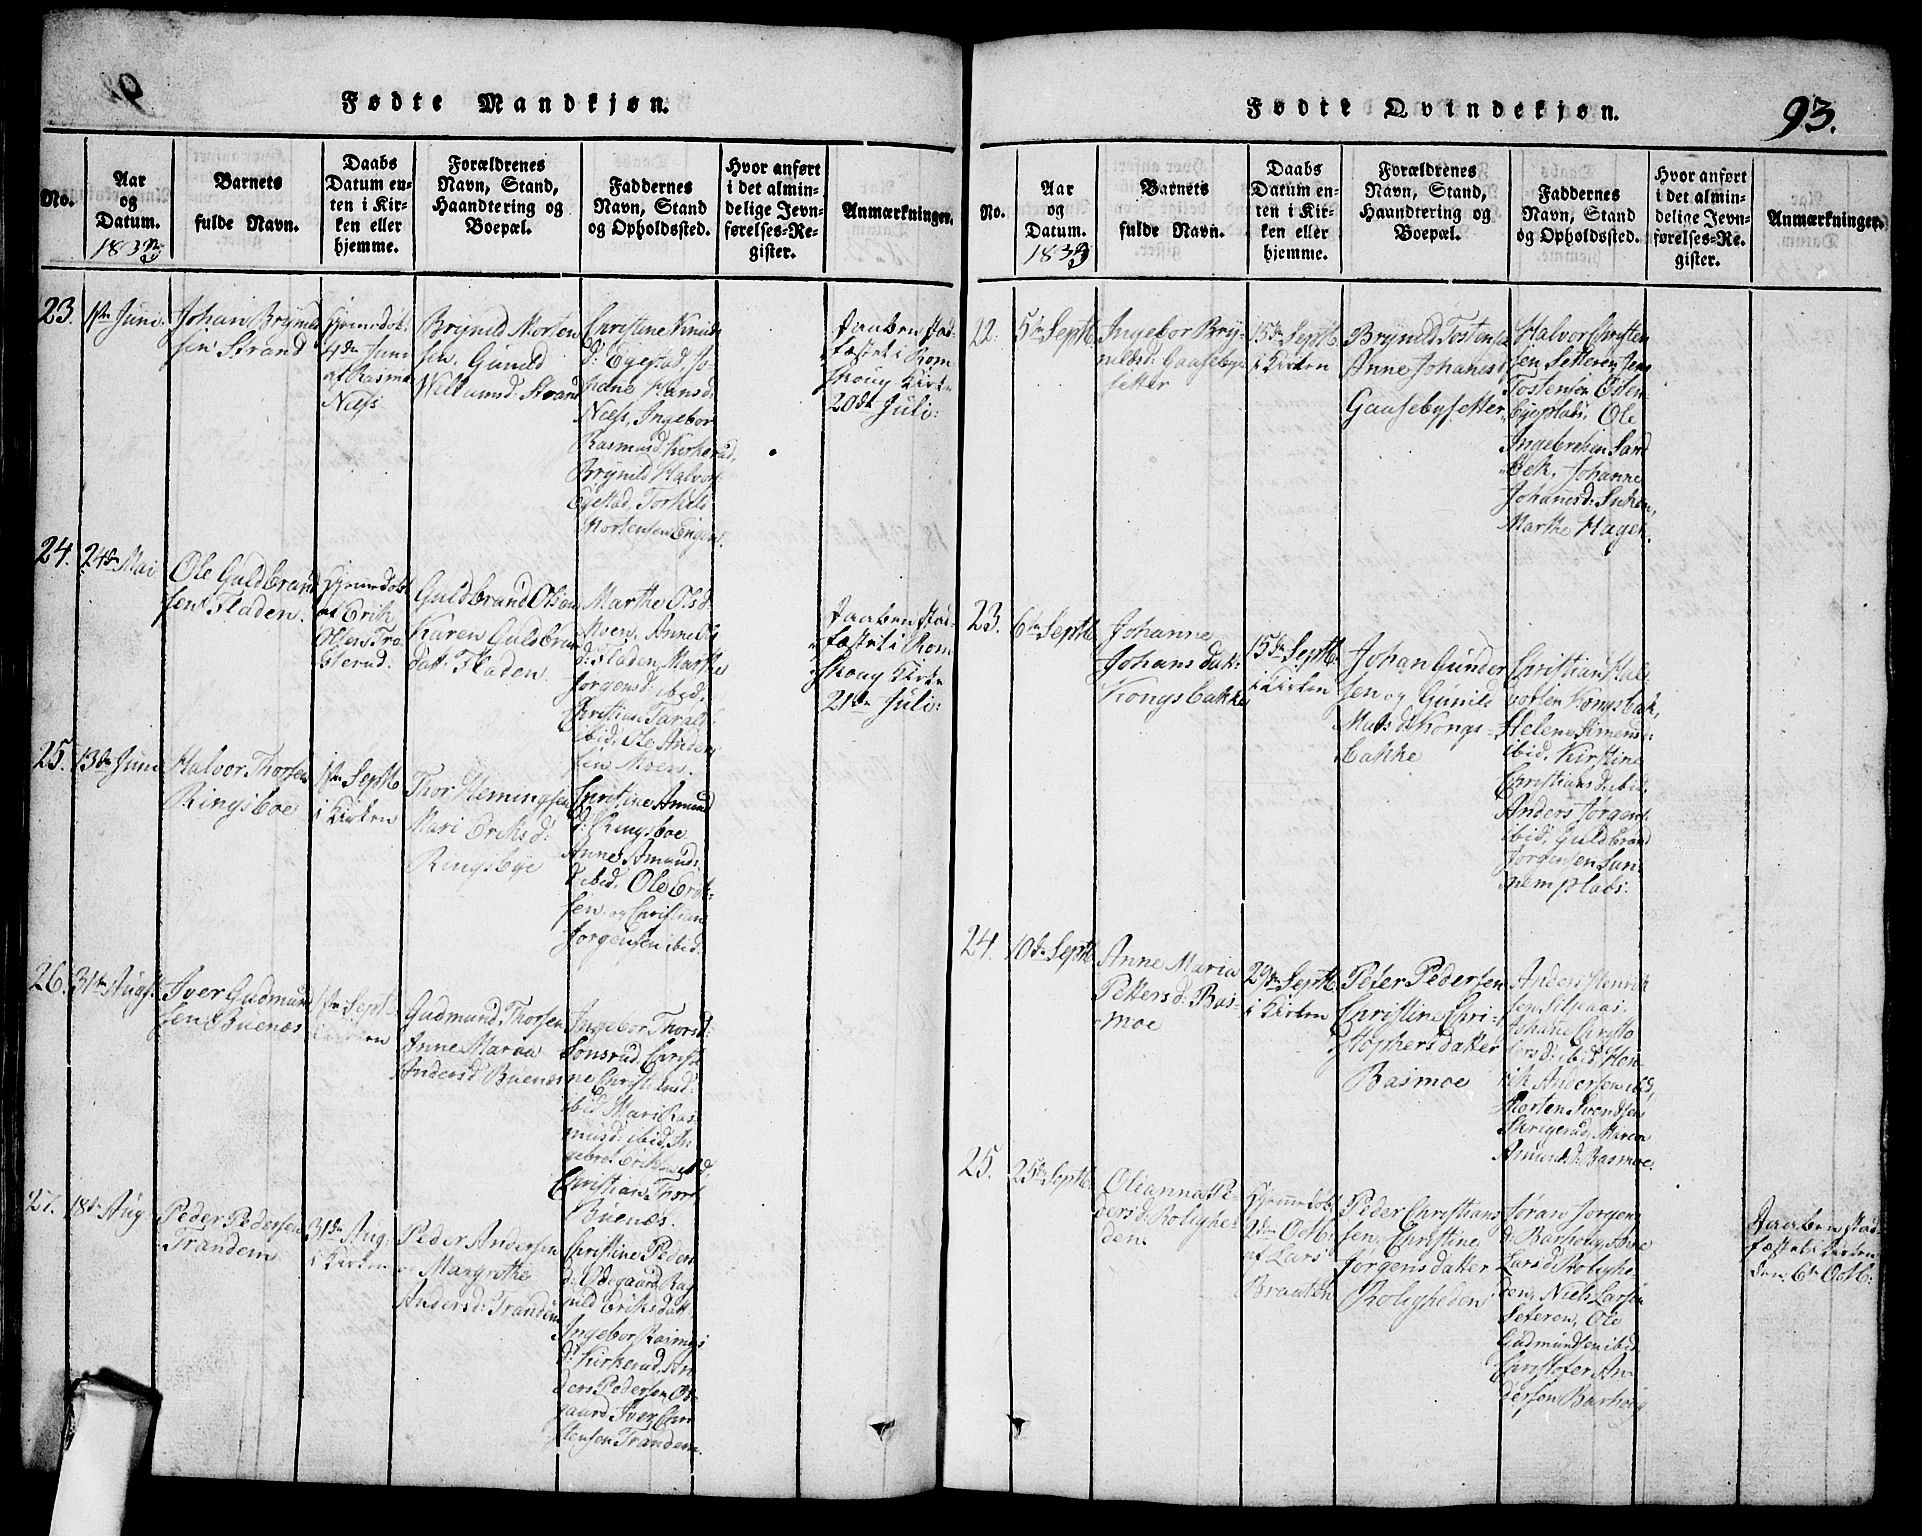 Fødte Mandkjøn.
No.
Aar
og
Datum.
1833
Barnets
fulde Navn.
Daabs
Datum en-
ten i Kir-
ken eller
hjemme.
Forældrenes
Navn, Stand,
Haandtering og
Boepæl.
Faddernes
Navn, Stand
og Opholdssted.
Hvor anført
i det almin-
delige Jevn-
førelses-Re-
gister.
Anmærkninger.
23.
1ste Juni
Johan Brynild
sen Strand
Hjemedøbt
4de Juni
af Rasmus
Næss
Brynild Morten
sen, Gunild
Strand
Christine Knuds
d: Egestad, Jo-
Hansd:
Næss, Ingebor
Rasmusd: Kirkerud,
Brynild Halvors:
Egestad, Torkild
Mortensen Engen.
Daaben stad-
fæstet i Rom
skoug Kirke
20de Juli:
24.
24de Mai
Ole Guldbrand
sen Fladen.
Hjemmedøbt
af Erik
Olsen Tro-
sterud:
Guldbrand Olsen
Karen Guldbran
datt: Fladen.
Marthe Olsd:
Moen, Anne Ol
d: Fladen, Marthe
Jørgensd: ibid,
Christian Tarald
ibid, Ole Anders
sen Moen.
Daaben stad-
fæstet i Rom
skoug Kirke
21de Juli:
25.
13de Juni
Halvor Thorsen
Ringsboe
1ste Septb
i Kirken
Thor Flemingsen
Mari Eriksd:
Ringsbye
Christine Amund
d: Ringsboe
Anne Amunds
d: ibid, Ole Erik-
sen og Christian
Jørgensen ibid:
26.
31te Augst
Iver Gudmund
sen Buenæs
1ste Septb
i Kirken
Gudmund Thorsen
Anne Maria
Andersd: Buenæs
Ingebor Thorsd:
Sonsrud, Christi
ne Christiansd:
ibid, Mari Ras-
musd: ibid, In
gebret Eriksen ibid,
Christian Thors
Buenæs.
27.
18de Aug
Peder Pedersen
Trandem
31de Aug
i Kirken
Peder Andersen
Margrethe
Andersd: Trandem
Christine Peders
d: Ødegaard, Rag
nild Eriksdatt
Ingebor Rasmus
d: Kirkerud, An
ders Pedersen Øde-
gaard, Iver Chri
stensen Trandem.
Fødte Qvindekjøn.
93.
No.
Aar
og
Datum.
1833
Barnets
fulde Navn.
Daabs
Datum en-
ten i Kir-
ken eller
hjemme.
Forældrenes
Navn, Stand,
Haandtering og
Boepæl.
Faddernes
Navn, Stand
og Opholdssted.
Hvor anført
i det almin-
delige Jevn-
førelses-Re-
gister.
Anmærkninger.
22.
5te Septb
Ingebor Bry-
nildsd: Gaasebye
setter
15de Septb.
i Kirken
Brynild Tostensen
Anne Johanesd
Gaasebysetter
Halvor Christen
sen Setteren, Jens
Tostensen Østen
byeplads, Ole
Ingebretsen Sand
bek, Johanne
Johanesd:
Marthe Hagen.
23.
6te Septb
Johanne
Johansdatt:
Kongsbakke
15de Septb:
i Kirken
Johan Gunder
sen og Gunild
Matsd: Kongs-
bakke
Christian Hal-
vorsen Kongsbak,
Helene Simensd:
ibid, Kirstine
Christiansd: ibid,
Anders Jørgens
ibid, Guldbrand
Jørgensen Sun-
nemplads:
24.
10de Septb
Anne Maria
Pettersd: Bas-
moe
29de Septb.
i Kirken
Peter Pedersen
Christine Chri-
stophersdatter
Basmoe
Anders Henrik
sen,
Johane Christo
fersd: ibid, Hen-
rik Andersen ibid,
Morten Svendsen
Maren
Amundsd: Basmoe:
25.
25de Septb:
Olianna Pe-
dersd: Rolighe-
den
Hjemmedøbt
2de Octb:
af Lars
Braaten
Peder Christians
sen, Christine
Jørgensdatter
Roligheden
Jøran Jørgens
d: Anne
Larsd: Rolighe
den, Niels Larsen
Seteren, Ole
Gudmundsen ibid
Christofer An-
dersen
Daaben stad-
fæstet i Kirken
den 6te Octb: